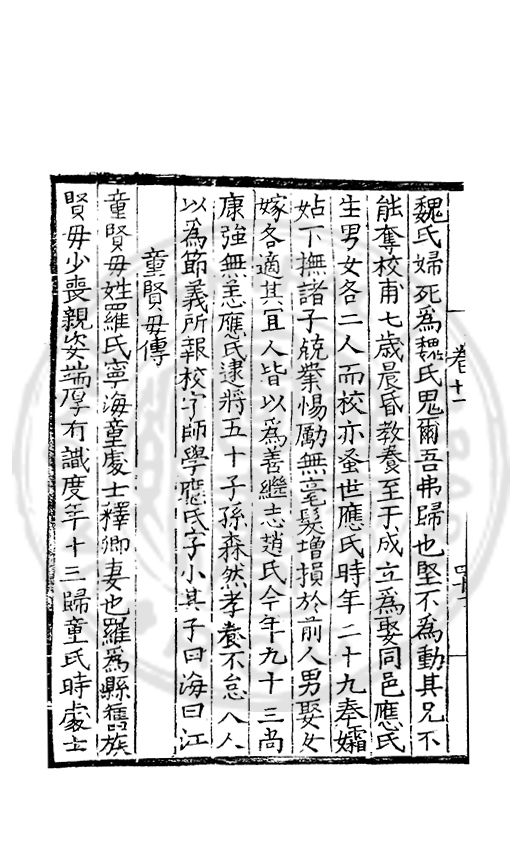 魏氏婦死爲魏氏鬼爾吾弗歸也堅不爲動其兄不
能奪校甫七歲晨昏教養至于成立爲娶同邑應氏
生男女各二人而校亦蚤世應氏時年二十九奉孀
姑下撫諸子兢業惕勵無毫髮增損於前人男娶女
嫁各適其宜人皆以爲善繼志趙氏今年九十三尚
康強無恙應氏逮將五十子孫森然孝養不怠人人
以爲節義所報校字師學應氏字小其子曰海曰江
童賢母傳
童賢母姓羅氏寧海童處士釋卿妻也羅爲縣舊族
賢母少喪親姿端厚有識度年十三歸童氏時處士
卷十一